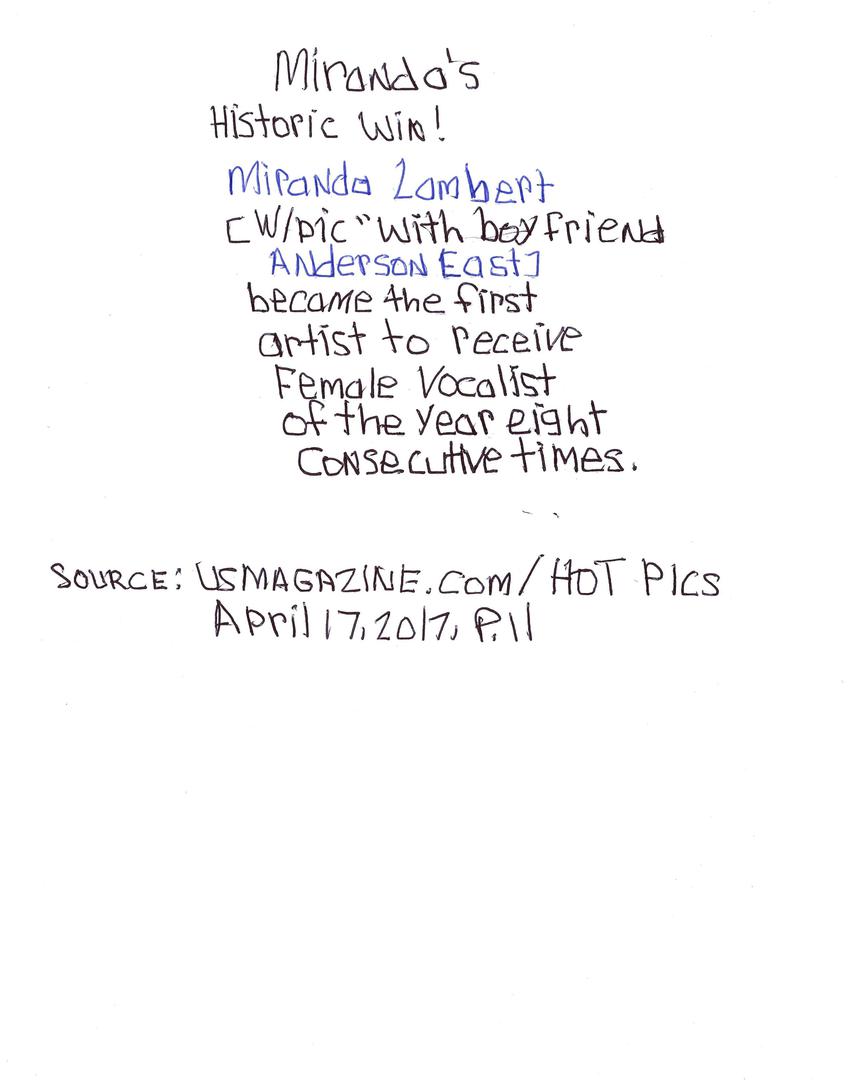 Miranda's
Historic Win!
Miranda Lambert
[W/pic "with boyfriend
Anderson East]
became the first
artist to receive
Female Vocalist
of the year eight
consecutive times.
SOURCE: USMAGAZINE.COM/HOT PICS
April 17, 2017, P.11